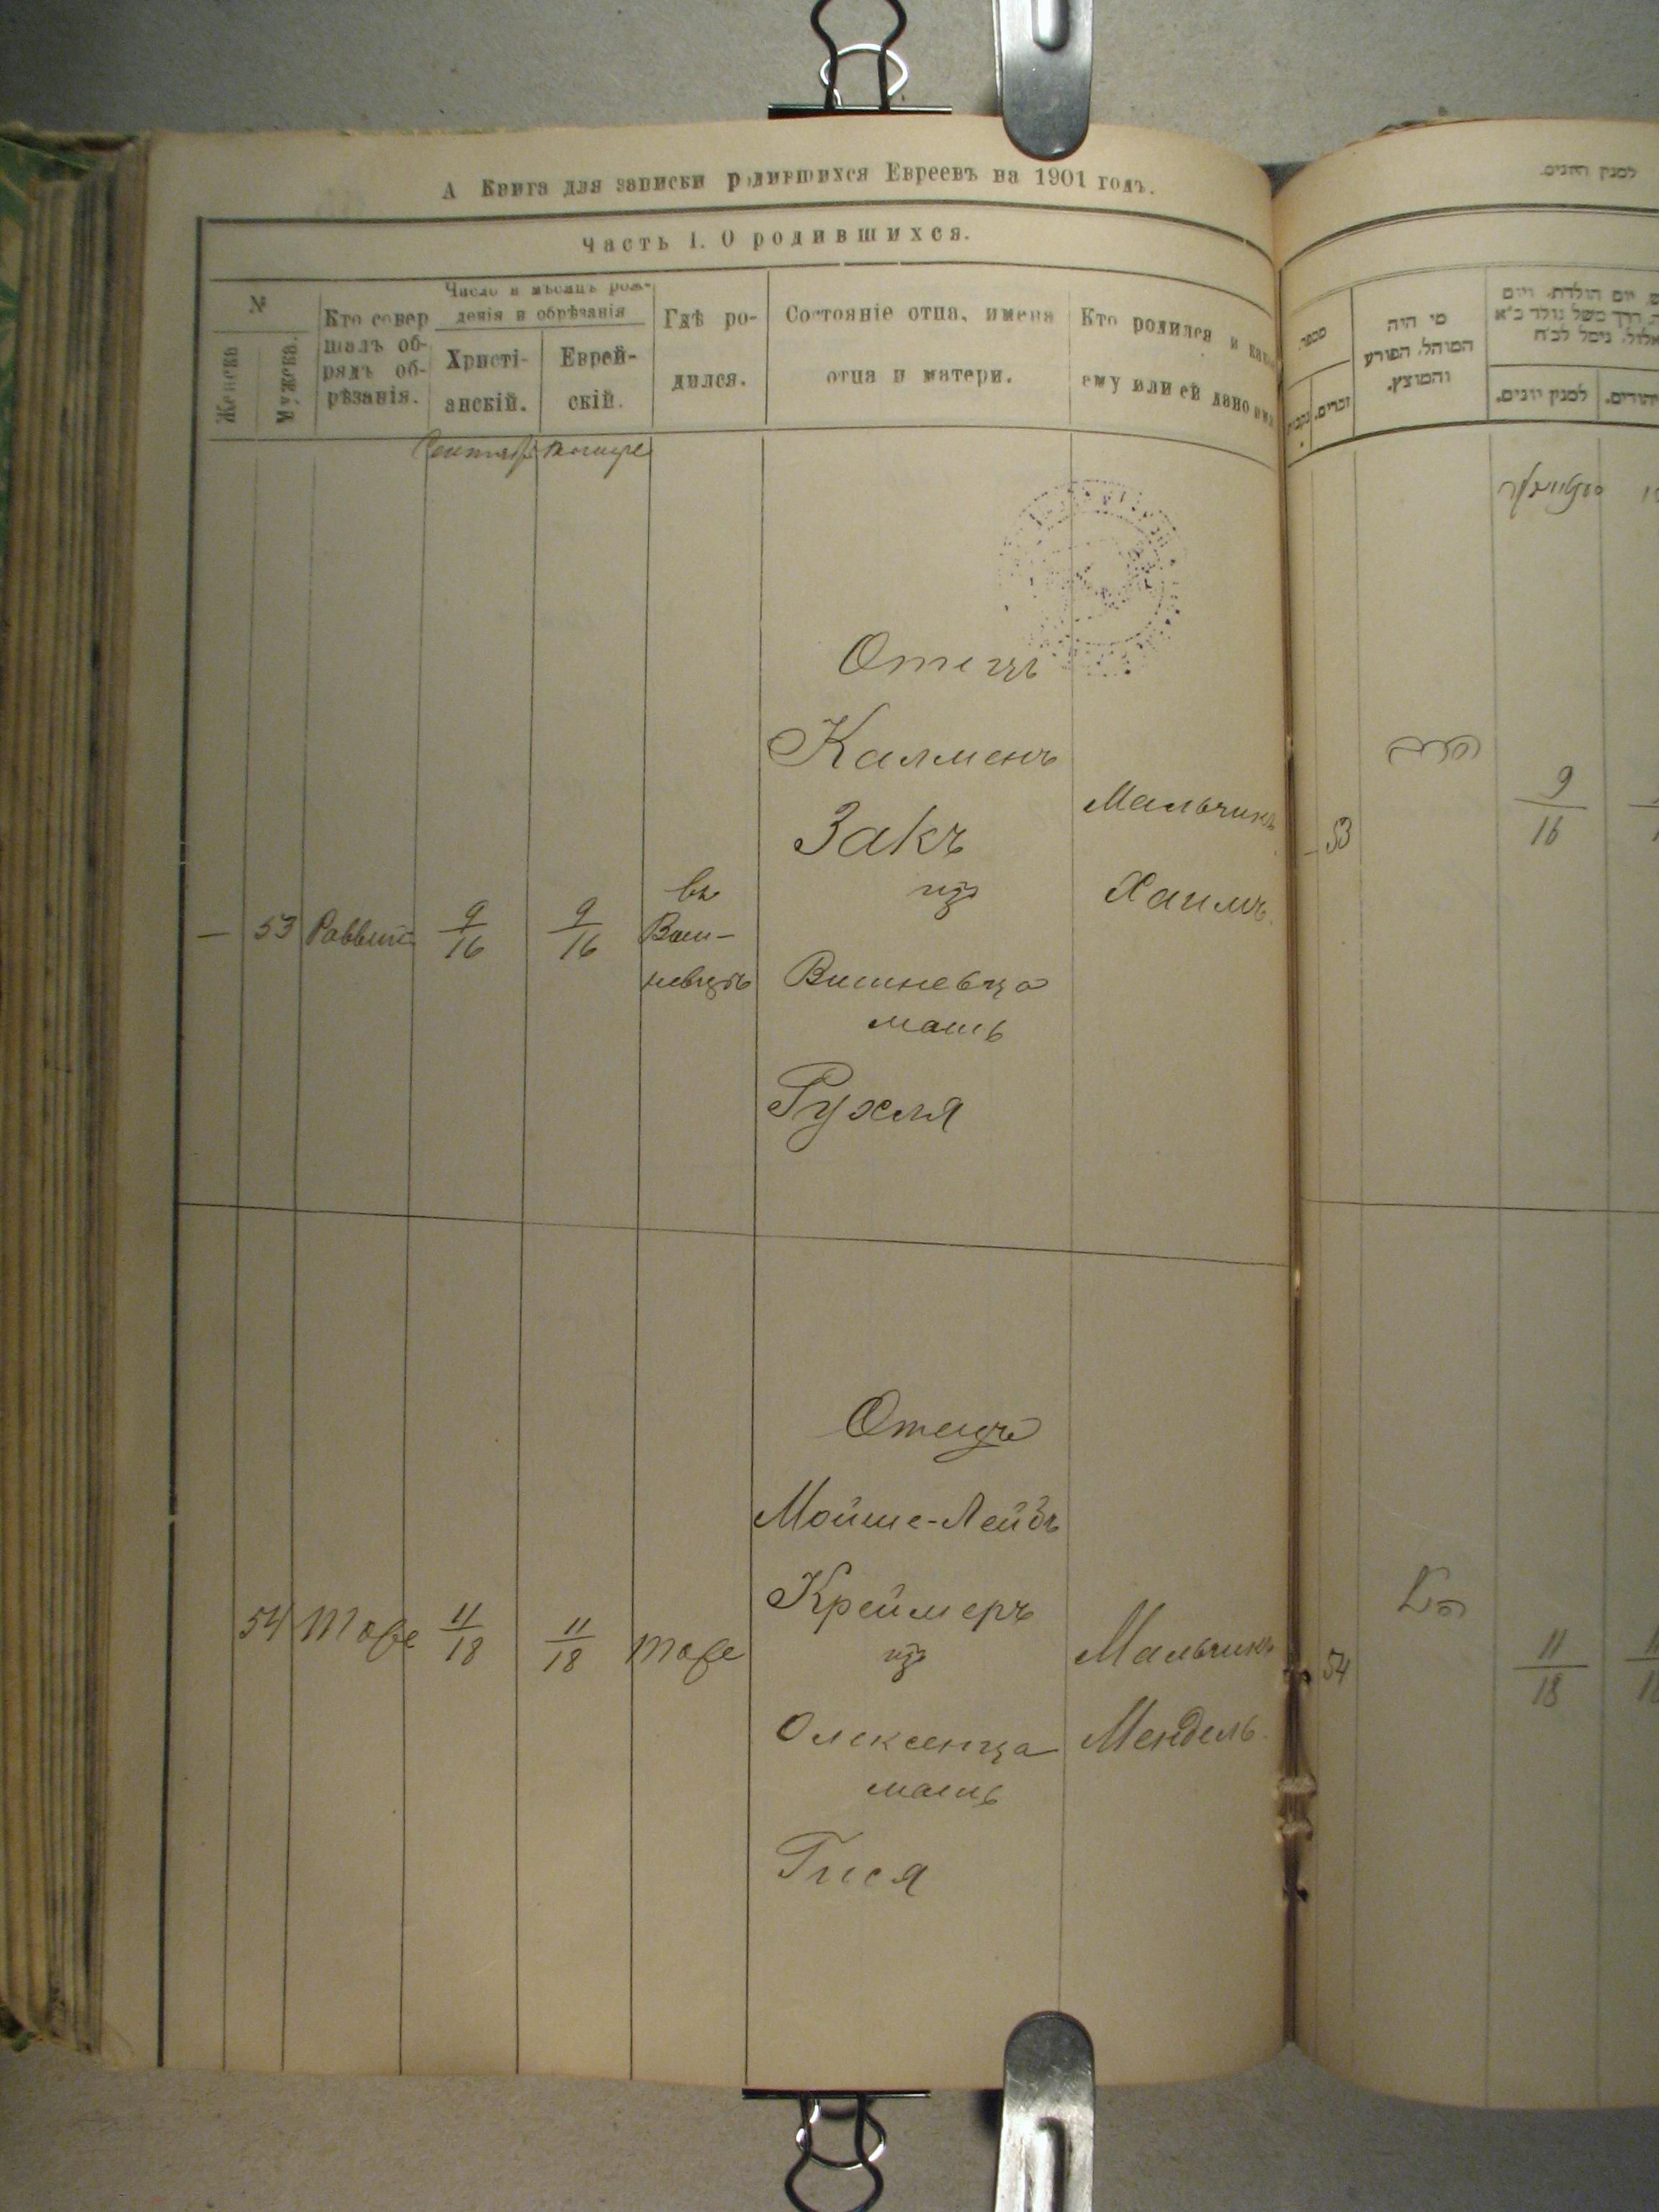 А Книга для записки родившихся Евреевъ на 1901 годъ.
Часть 1. О родившихся.
№
Женска
Мужеска.
Кто совер
шалъ об-
рядъ об-
рѣзанія.
Число и мѣсяцъ рож-
денія и обрѣзанія
Христі-
анскій.
Еврей-
скій.
Гдѣ ро-
дился.
Состояніе отца, имена
отца и матери.
Кто родился и какое
ему или ей дано имя
— 53 Раввинъ 9/16 9/16
въ
Виш-
невцѣ
Отецъ
Калменъ
Закъ
изъ
Вишневца
мать
Рухля
Мальчикъ
Хаимъ.
54 Тоже 11/18 11/18 тоже
Отецъ
Мойше-Лейбъ
Креймеръ
изъ
Олексенца
мать
Гися
Мальчикъ
Мендель.
מספר.
זכרים.
מי היה
המוהל, הפורע
והמוצץ.
למנין יונים.
53
9/16
54
11/18